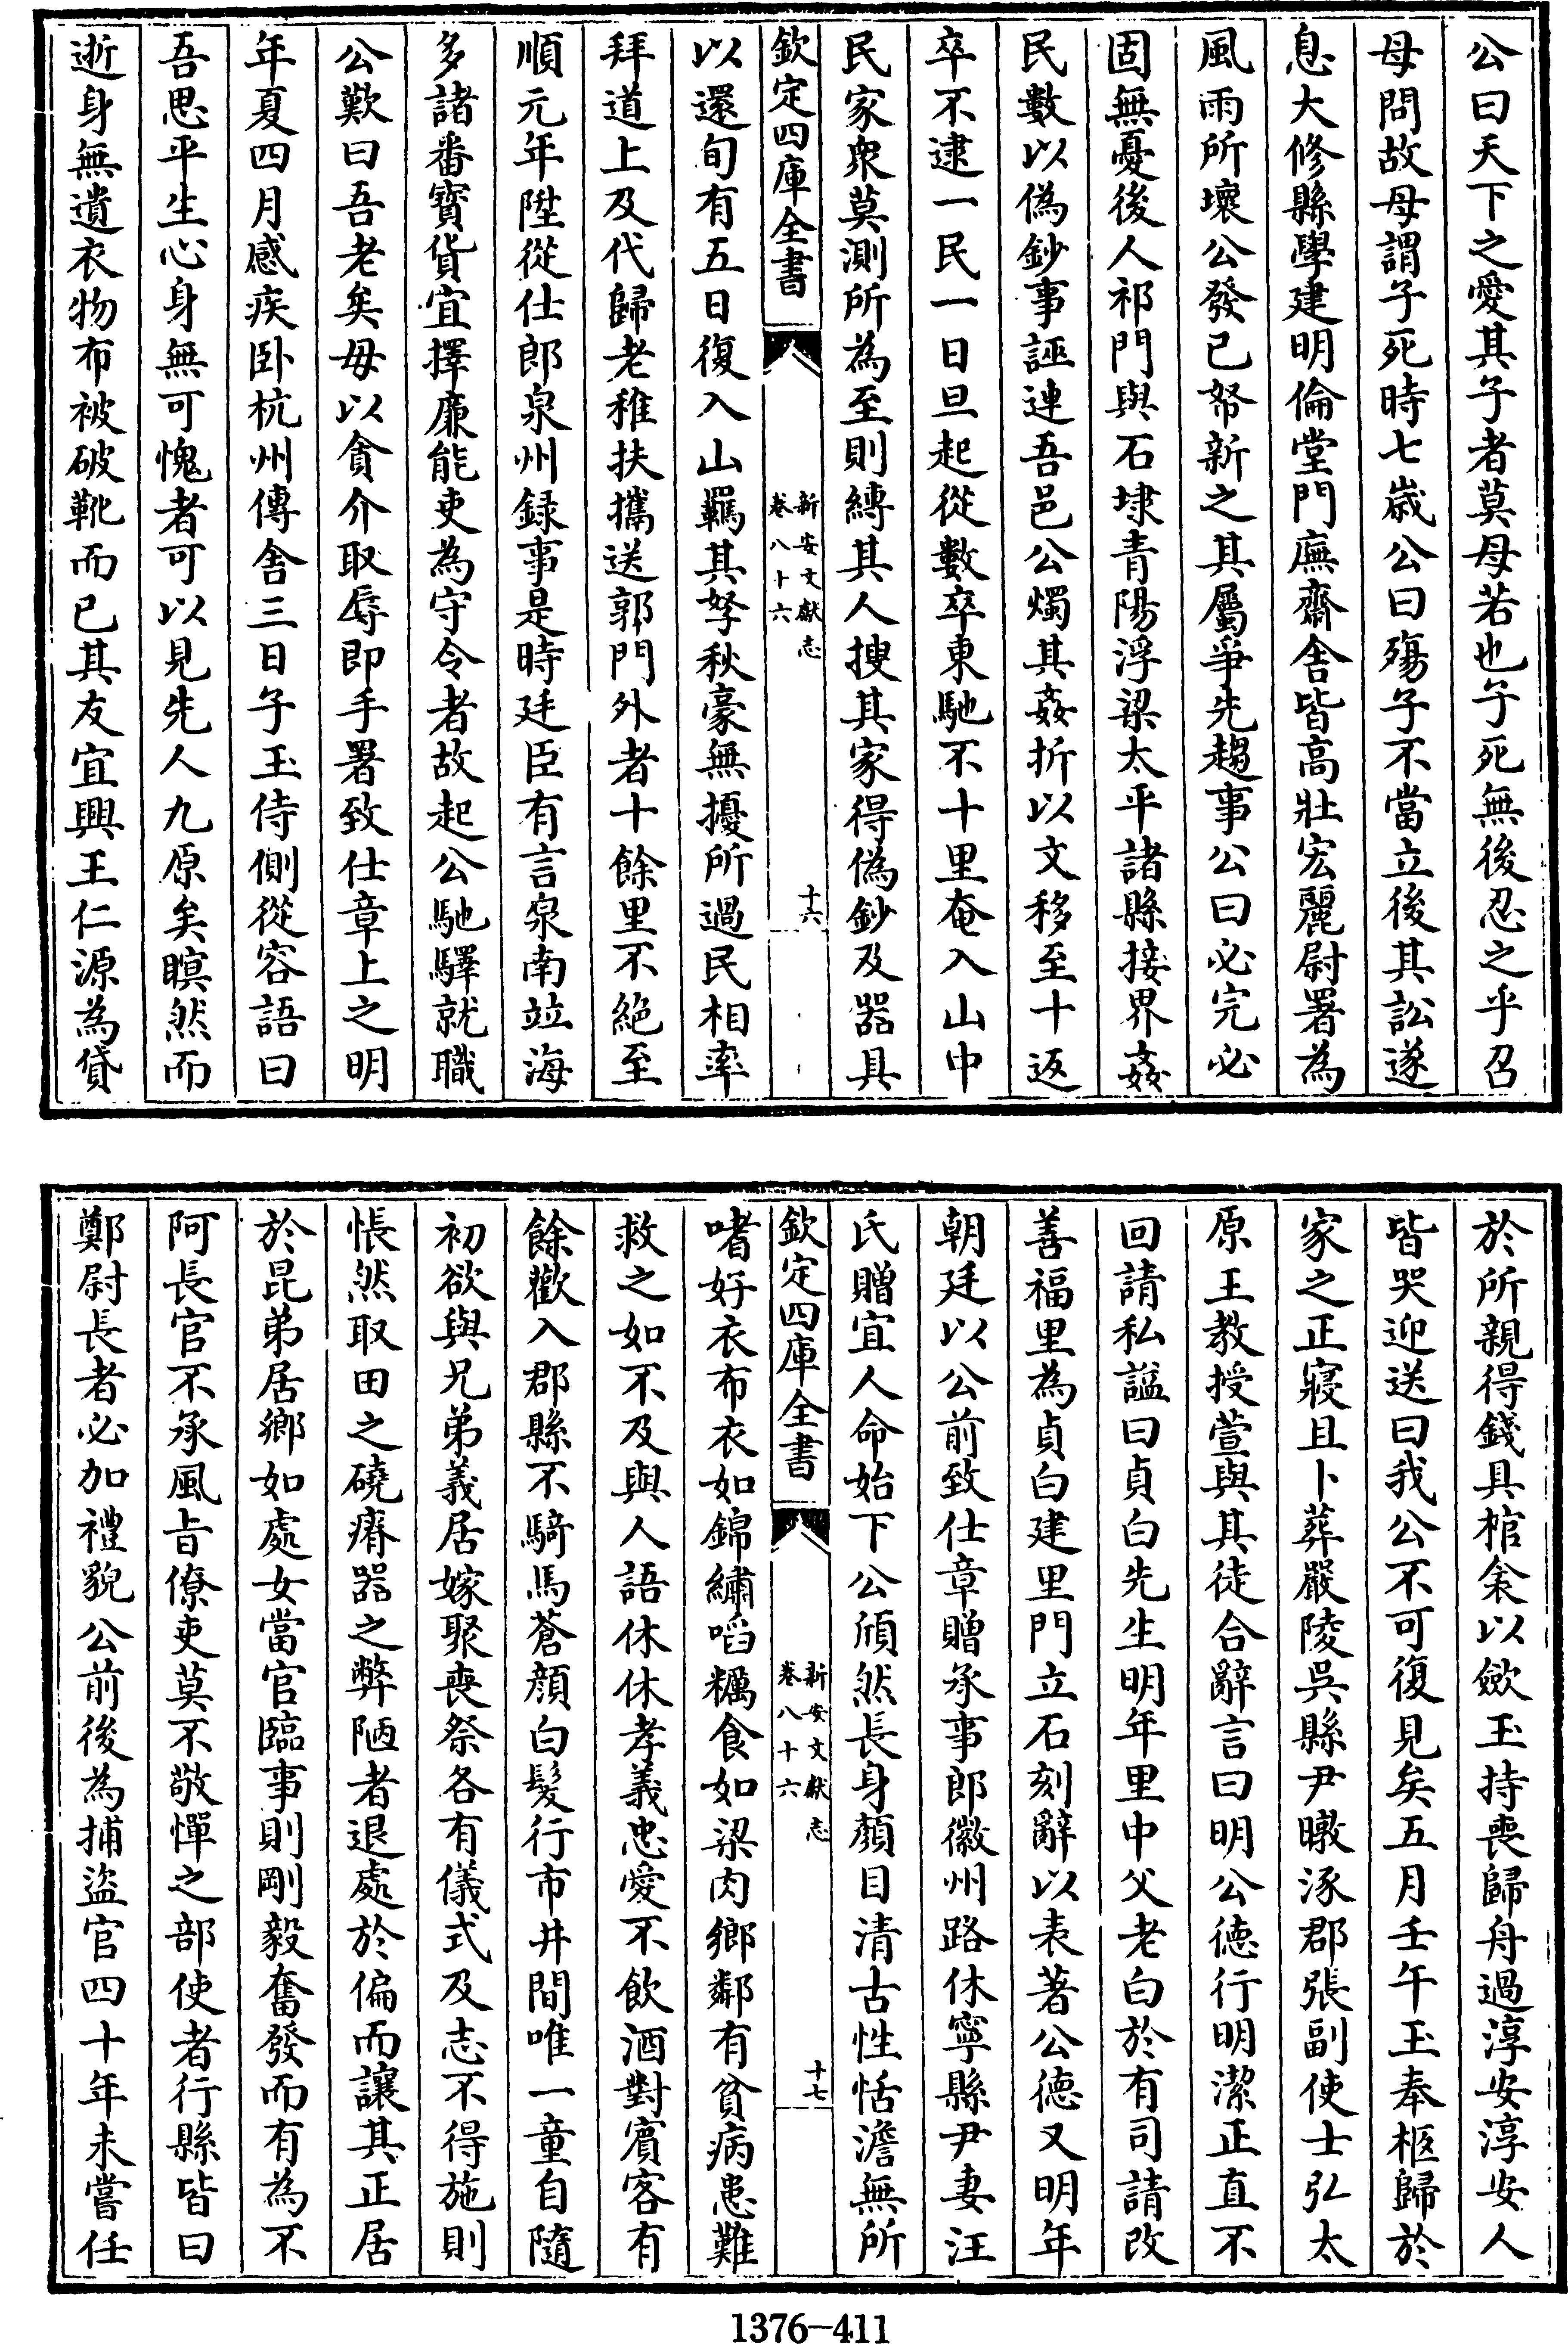 公曰天下之愛其子者莫母若也子死無後忍之乎召
母問故母謂子死時七歳公曰殤子不當立後其訟遂
息大修縣學建明倫堂門廡齋舍皆高壯宏麗尉署為
風雨所壞公發已帑新之其屬爭先趨事公曰必完必
固無憂後人祁門與石埭青陽浮梁太平諸縣接界姦
民數以偽鈔事誣連吾邑公燭其姦折以文移至十返
卒不逮一民一日旦起從數卒東馳不十里奄入山中
民家衆莫測所為至則縛其人搜其家得偽鈔及器具
欽定四庫全書
新安文獻志
卷八十六
十六
以還旬有五日復入山羈其孥秋豪無擾所過民相率
拜道上及代歸老稚扶攜送郭門外者十餘里不絕至
順元年陞從仕郎泉州録事是時廷臣有言泉南竝海
多諸番寳貨宜擇廉能吏為守令者故起公馳驛就職
公歎曰吾老矣毋以貪介取辱即手署致仕章上之明
年夏四月感疾卧杭州傳舍三日子玉侍側從容語曰
吾思平生心身無可愧者可以見先人九原矣瞑然而
逝身無遺衣物布被破靴而已其友宜興王仁源為貸
於所親得錢具棺衾以斂玉持喪歸舟過淳安淳安人
皆哭迎送曰我公不可復見矣五月壬午玉奉柩歸於
家之正寢且卜葬嚴陵呉縣尹暾涿郡張副使士弘太
原王教授萱與其徒合辭言曰明公德行明潔正直不
回請私謚曰貞白先生明年里中父老白於有司請改
善福里為貞白建里門立石刻辭以表著公德又明年
朝廷以公前致仕章贈承事郎徽州路休寧縣尹妻汪
氏贈宜人命始下公頎然長身顏目清古性恬澹無所
欽定四庫全書
新安文獻志
卷八十六
十七
嗜好衣布衣如錦繡啗糲食如梁肉鄉鄰有貧病患難
救之如不及與人語休休孝義忠愛不飲酒對賓客有
餘歡入郡縣不騎馬蒼顏白髮行市井間唯一童自隨
初欲與兄弟義居嫁聚喪祭各有儀式及志不得施則
悵然取田之磽瘠器之弊陋者退處於偏而讓其正居
於昆弟居鄉如處女當官臨事則剛毅奮發而有為不
阿長官不承風旨僚吏莫不敬憚之部使者行縣皆曰
鄭尉長者必加禮貌公前後為捕盜官四十年未嘗任
1376-411